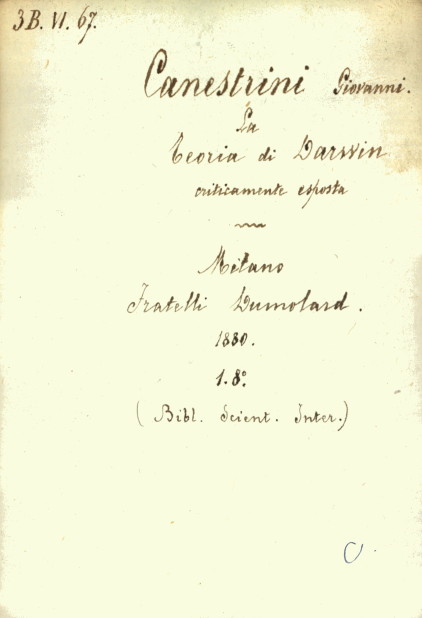 3B. VI. 67.
Canestrini Giovanni.
La
Teoria di Darwin
criticamente esposta
Milano
Fratelli Dumolard.
1880.
1. 8º.
(Bibl. Scient. Inter.)
C.